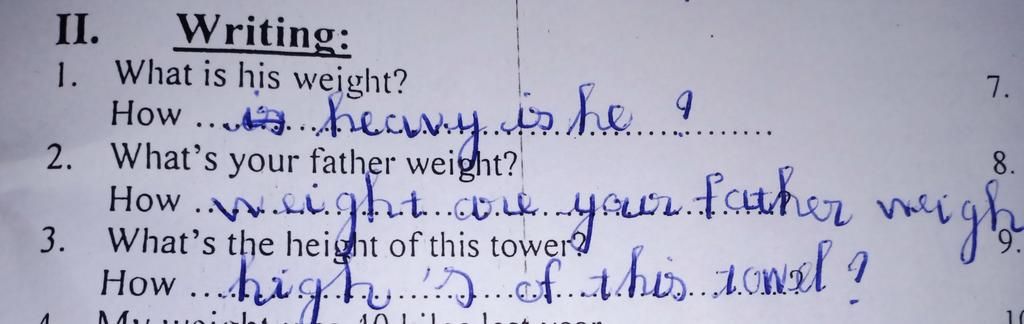 II. Writing:
1. What is his weight?
7.
How ........ heavy is he ? ........
2. What's your father weight?
8.
How .. weight are your father weigh
3. What's the height of this tower?
9.
How ... high 's of this towel ?